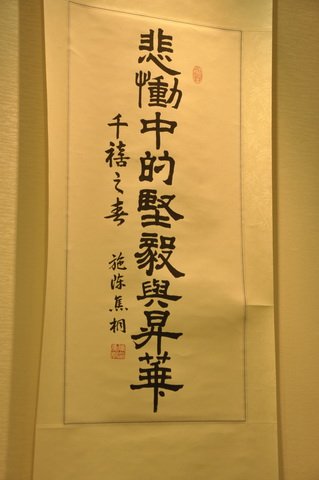 悲慟中的堅毅與昇華
千禧之春
施陈焦桐